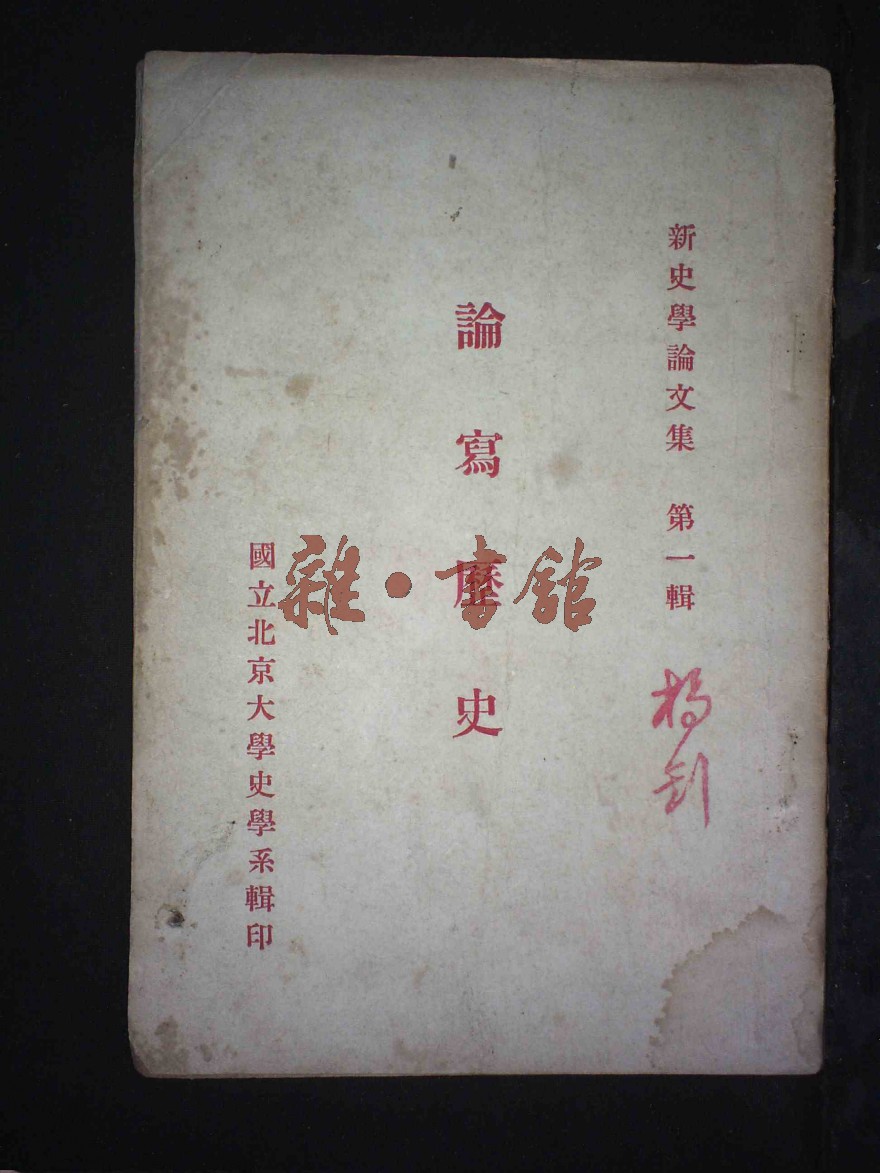 新史學論文集 第一輯
論寫歷史
國立北京大學史學系輯印
雜·書館